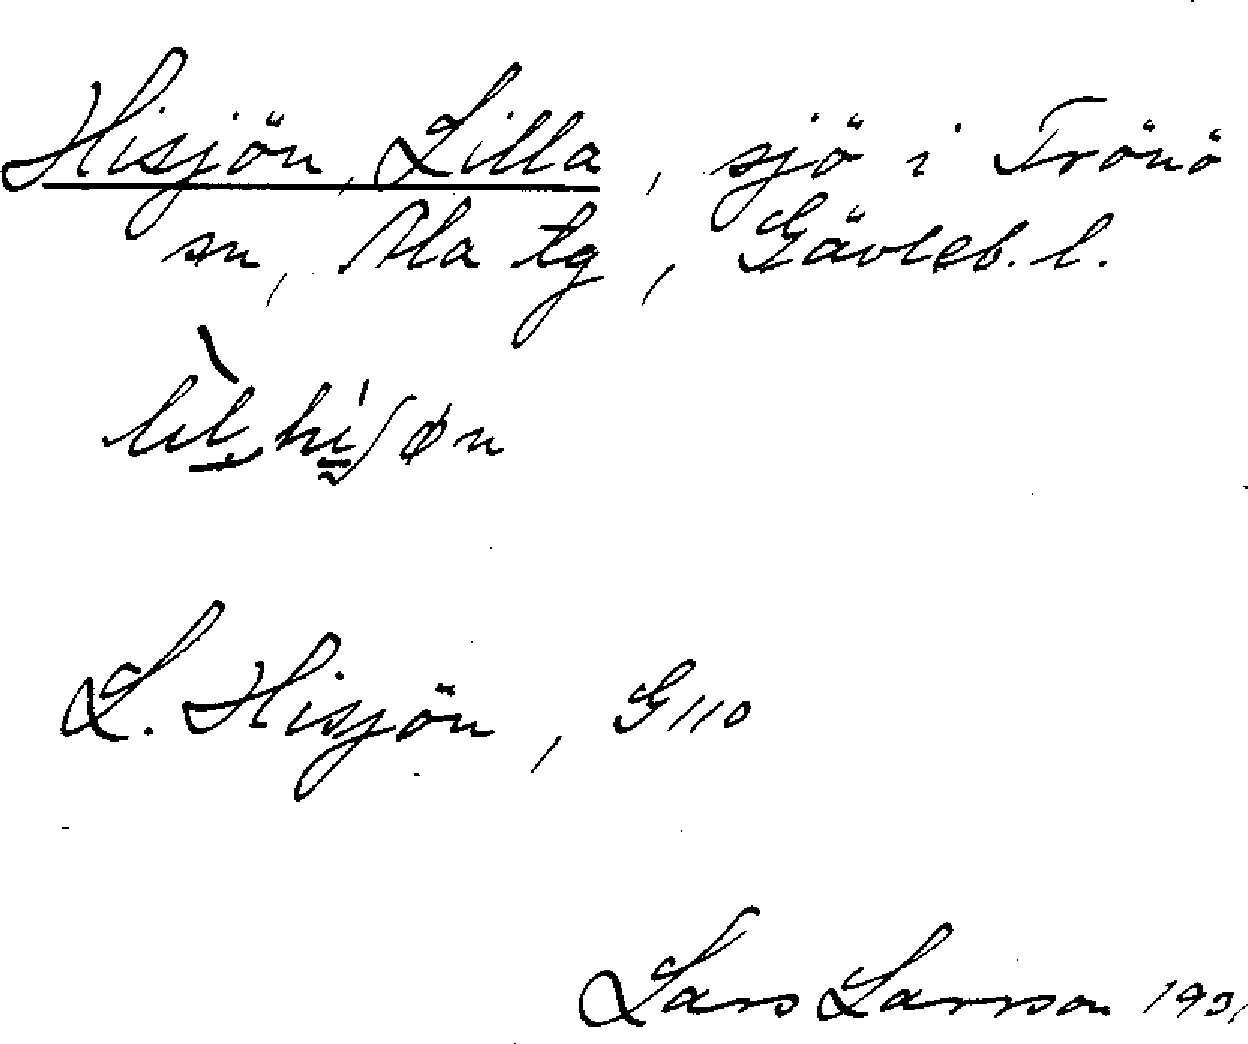 Hisjön, Lilla, sjö i Trönö
sn, Ala tg, Gävleb. l.
lìl hi̱ʃøn
L. Hisjön, G110
Lars Larsson 1931